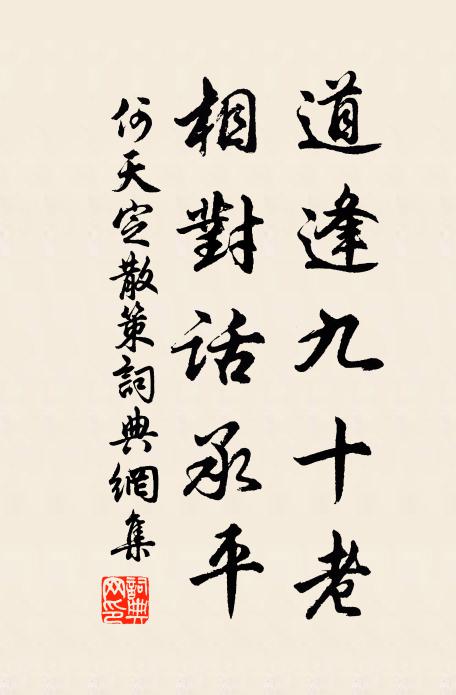 道逢九十老
相對話承平
何天定散策詞典網集
詞典網印